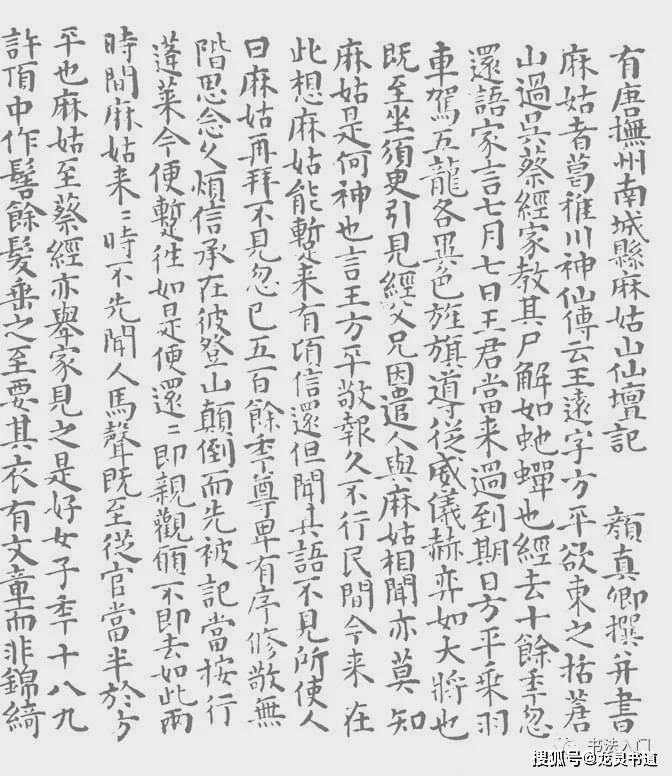 有唐撫州南城縣麻姑山仙壇記 顏真卿撰并書
麻姑者葛稚川神仙傳云王遠字方平欲東之括蒼
山過吳蔡經家教其尸解如虵蟬也經去十餘秊忽
還語家言七月七日王君當来過到期日方平乘羽
車駕五龍各異色旌旗導從威儀赫弈如大將也
既至坐須臾引見經父兄因遣人與麻姑相聞亦莫知
麻姑是何神也言王方平敬報久不行民間今来在
此想麻姑能暫来有頃信還但聞其語不見所使人
曰麻姑再拜不見忽已五百餘秊尊卑有序修敬無
階思念久煩信承在彼登山顛倒而先被記當按行
蓬萊今便暫往如是便還〻即親觀願不即去如此兩
時間麻姑来〻時不先聞人馬聲既至從官當半於方
平也麻姑至蔡經亦舉家見之是好女子秊十八九
許頂中作髻餘髮垂之至要其衣有文章而非錦綺
书法入门
搜狐号@龙灵书道